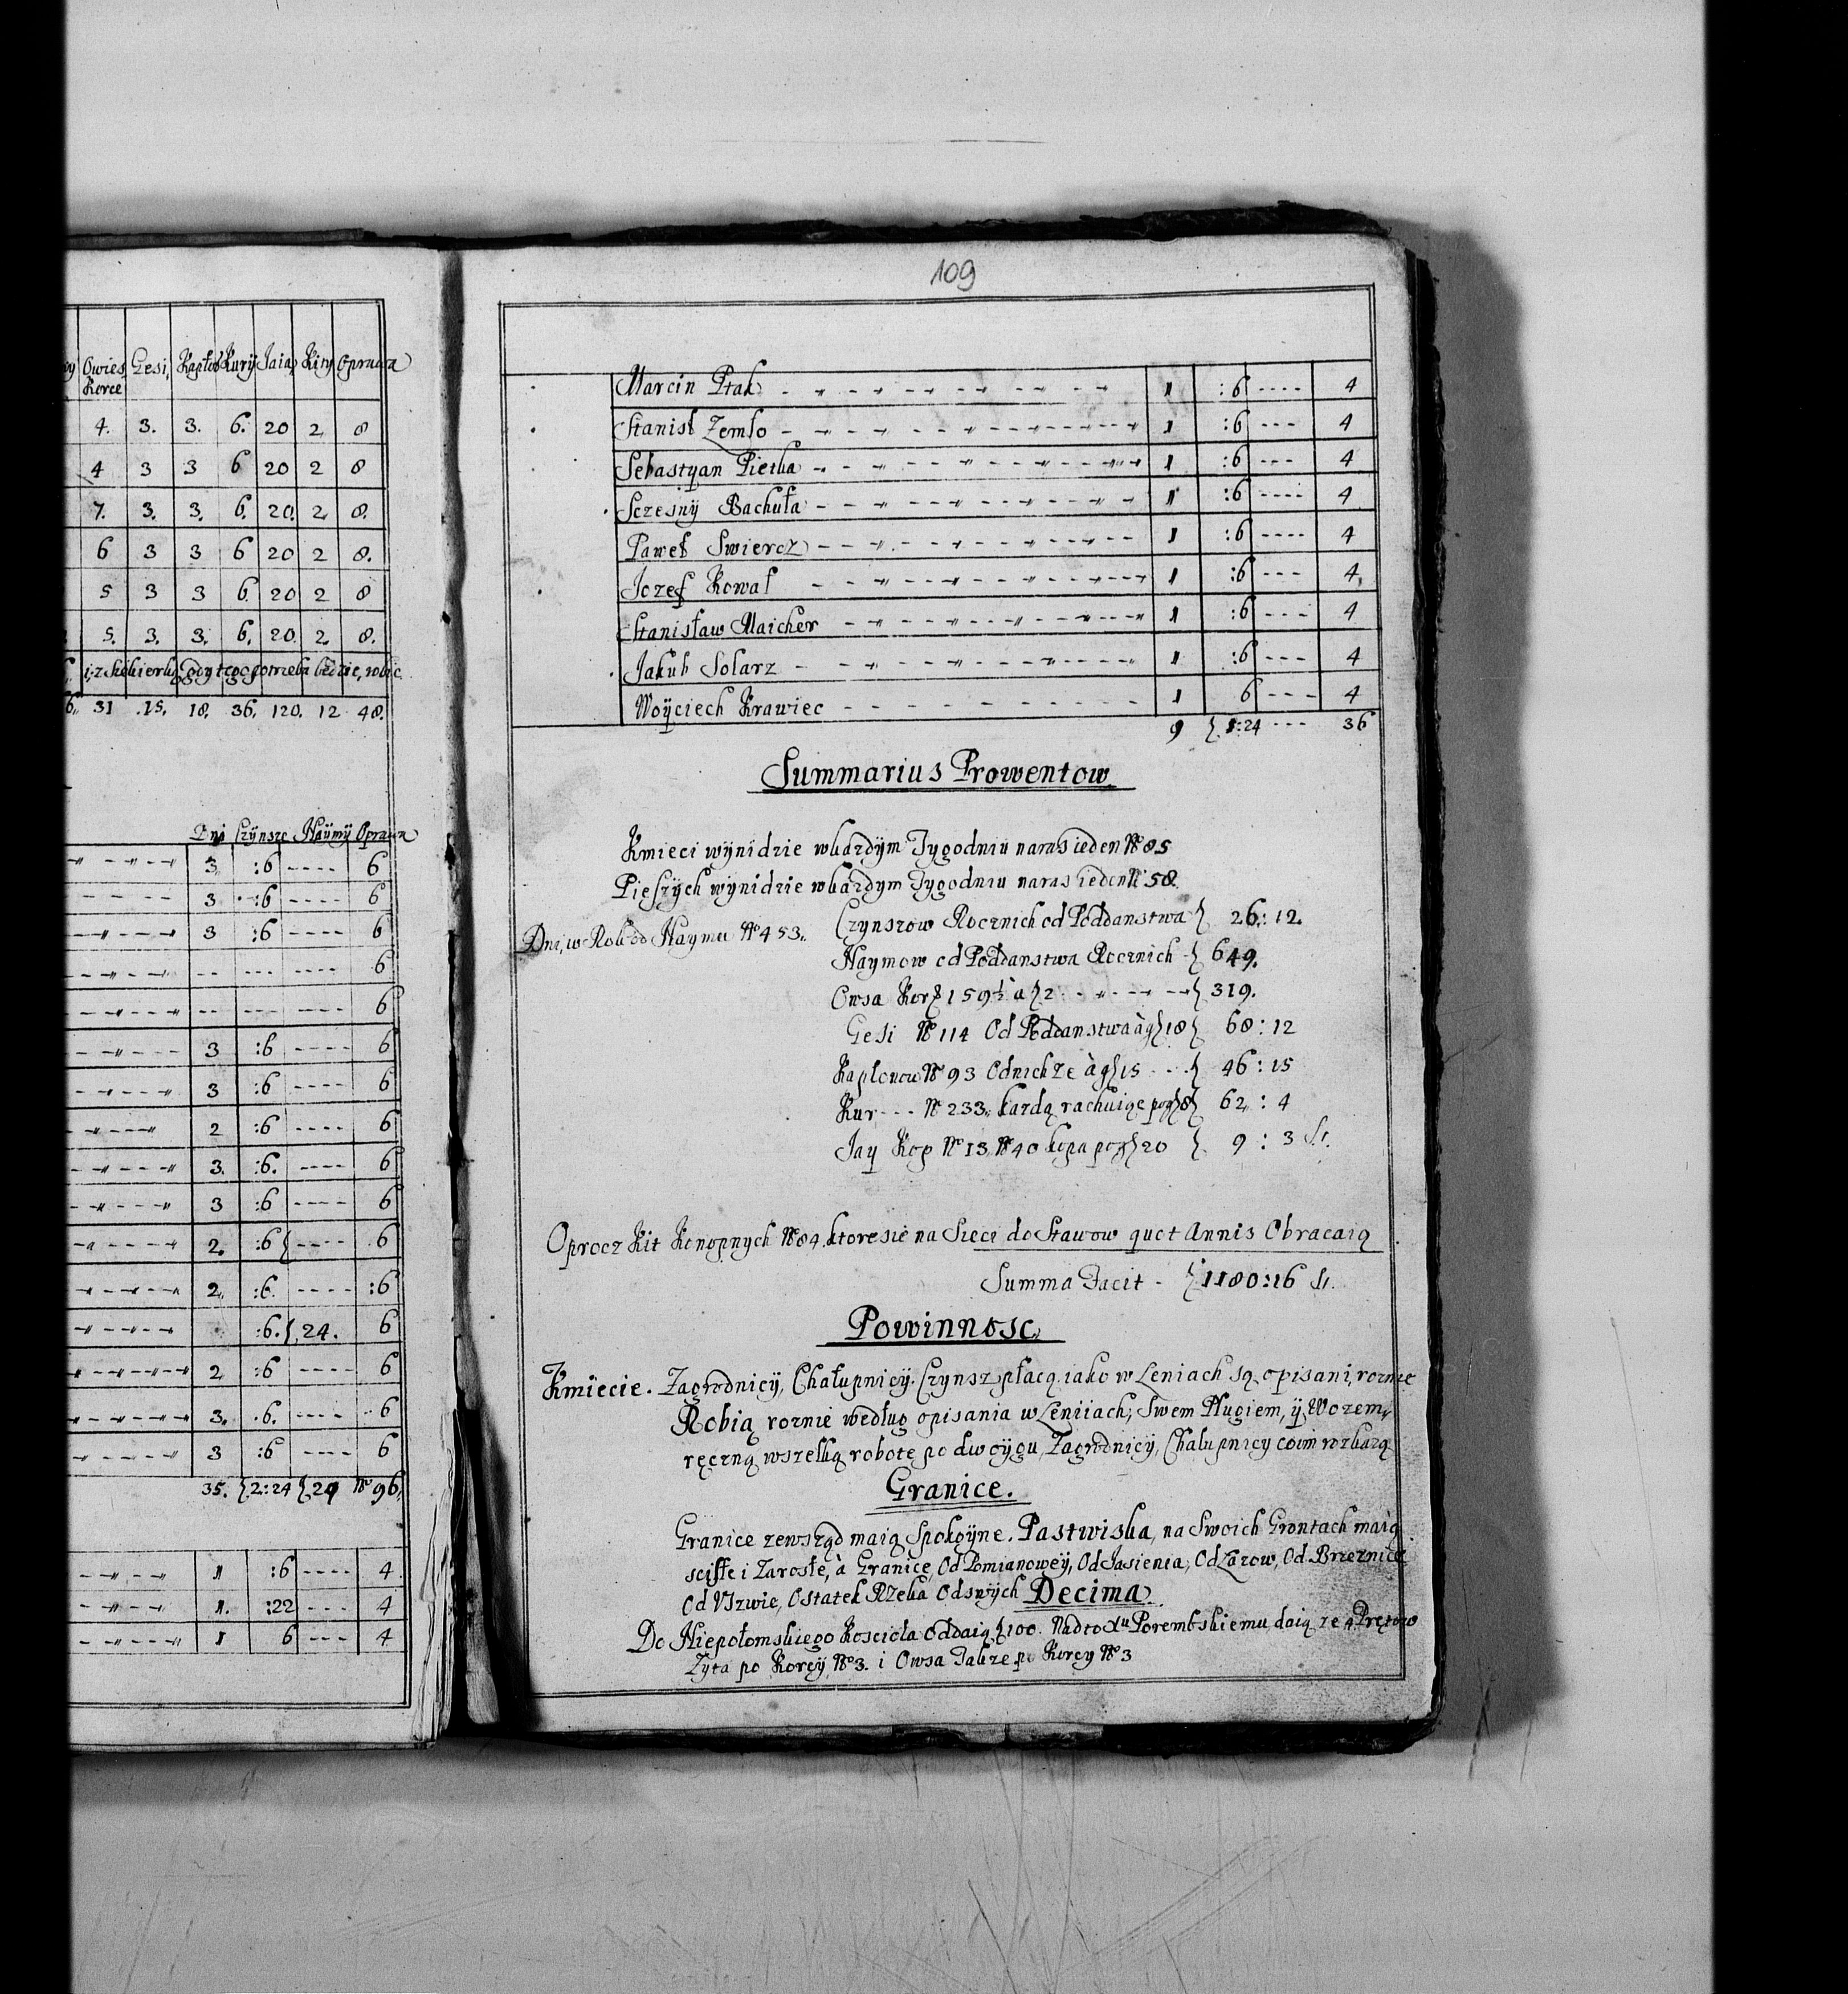 Owies Gesi, Kapłoy Kury Jaia, Kity Oprawa
Korce
4. 3. 3. 6. 20 2. 8
4 3 3 6 20 2 8
7. 3. 3. 6. 20. 2. 8.
6 3 3 6 20 2 8.
5 3 3 6. 20 2 8
5. 3. 3. 6. 20. 2. 8.
potrzeba będzie, robić.
6. 31 .15. 18. 36. 120. 12 48.
Dni Czynsze Naymy Oprawa
3. :6 ---- 6
3 :6 ---- 6
3 :6 ---- 6
-- --- ---- 6
-- --- ---- 6
3 :6 ---- 6
3 :6 ---- 6
2 :6 ---- 6
3. :6. ---- 6
3 :6 ---- 6
2. :6 ---- 6
2. :6. ---- :6
:6. 24. 6
2 :6 ---- 6
3. .6. ---- 6
3 :6 ---- 6
35. 2:24 24 No 96.
1 :6 ---- 4.
1. :22 --- 4
1 6 --- 4
109
Marcin Ptak 1 :6 ---- 4
Stanisł Zemło 1 :6 --- 4
Sebastyan Pietka 1 :6 --- 4
Sczesny Bachuła 1 :6 ---- 4
Paweł Swiercz 1 :6 ---- 4
Jozef Kowal 1 :6 --- 4.
Stanisław Maicher 1 :6 --- 4
Jakub Solarz 1 :6 --- 4
Woyciech Krawiec 1 6 --- 4
9 1:24 --- 36
Summarius Prowentow
Kmieci wynidzie wkazdym Tygodniu naras ieden No 85
Pieszych wynidzie wkazdym Tygodniu naras ieden No 58.
Dni, w Rok od Naymu No 453.. Czynszow Rocznich od Poddanstwa 26: 12.
Naymow od Poddanstwa Rocznich 649.
Owsa Kor 159½ a 2 319.
Gesi No 114 Od Poddanstwa à g 18 68: 12
Kapłonow No 93 Odnichze à g 15 --- 46: 15
Kur --- No 233. kazdą rachuiąc po g 8 62: 4
Jay Kop No 13 No 40 kopa po g 20 9 : 3 Sz.
Oprocz Kit Konopnych No 84. ktore sie na Sieci do Stawow quot Annis Obracaią
Summa Facit - 1180:16 Sz.
Powinnosc
Kmiecie. Zagrodnicy, Chałupnicy. Czynsz płacą iako w Leniach są opisani, roznie
Robią roznie według opisania w Leniiach; Swem Pługiem, y Wozem,
ręczną wszelką robotę po dwoygu, Zagrodnicy, Chałupnicy co im rozkazą
Granice.
Granice zewsząd maią Spokoyne. Pastwiska, na Swoich Grontach maią
scisłe i Zarosłe, à Granice, Od Pomianowey, Od Jasienia, Od Łazow, Od Brzeznice
Od Uszwie, Ostatek Rzeka Odsnych Decima.
Do Niepołomskiego Koscioła Oddaią 100. Nadto Xu Porembskiemu daią ze 4 Prętow
Zyta po Korcy No 3. i Owsa Takze po Korcy No 3